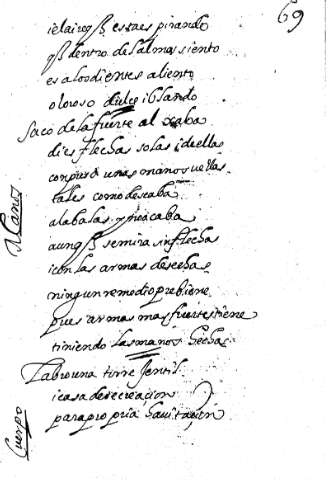 69
iel aire q̃ essa es pirando
q̃ dentro del alma siento
es a los dientes aliento
oloroso dulce i blando
Saco de la fuerte aljaba
dies flechas solas i de ellas
con puro unas manos vellas
tales como deseaba
alabalas y no acaba
aunq̃ se mira sin flechas
i con las armas desechas
ningun remedio prebiene
pues armas mas fuertes tiene
tiniendo las manos hechas
Labro una torre Jentil
i casa de recreaçion
para propria havitaçion
Cuerpo